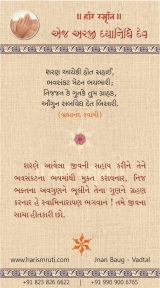 ॥ હરિ સ્મૃતિ ॥
એજ અરજી દયાનિધિ દેવ
શરણ આયેકી હોત સહાઈ,
ભવસંકટ મેટન ભયભારી;
નિજજન કે ગુનકે તુમ ગ્રાહક,
ઔગુન સબવિધ દેત બિસારી.
(બ્રહ્માનંદ સ્વામી)
શરણે આવેલા જીવની સહાય કરીને તેને
ભવસંકટના ભયમાંથી મુક્ત કરાવનાર, નિજ
ભક્તના અવગુણને ભૂલીને તેના ગુણને ગ્રહણ
કરનાર હે સ્વામિનારાયણ ભગવાન ! તમે જીવના
સાચા હીતકારી છો.
www.harismruti.com
Jnan Baug - Vadtal
+91 823 826 6622
+91 990 900 6765